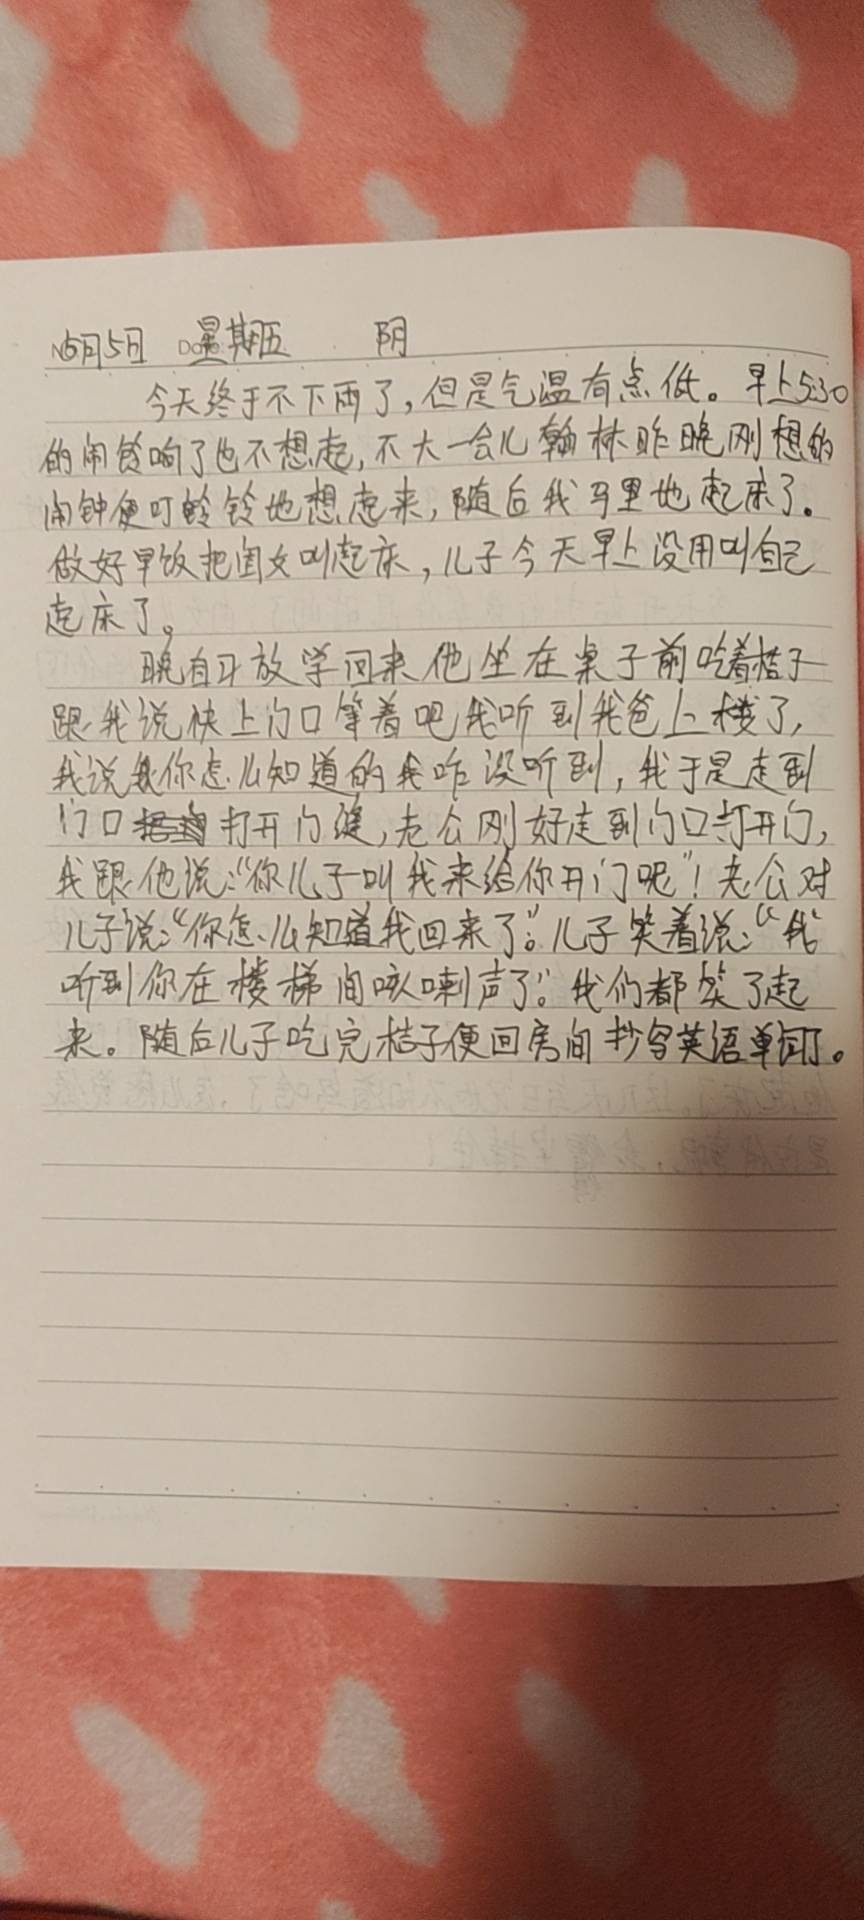 5月5日 星期五 阴
今天终于不下雨了,但是气温有点低。早上5:30
的闹铃响了也不想起,不大一会儿翰林昨晚刚想的
闹钟便叮铃铃地想起来,随后我马里地起床了。
做好早饭把闺女叫起床,儿子今天早上没用叫自己
起床了。
晚自习放学回来他坐在桌子前吃着桔子
跟我说快上门口等着吧我听到我爸上楼了,
我说我你怎么知道的我咋没听到,我于是走到
门口 打开门缝,老公刚好走到门口打开门,
我跟他说:“你儿子叫我来给你开门呢”!老公对
儿子说:“你怎么知道我回来了”。儿子笑着说:“我
听到你在楼梯间咳嗽声了”。我们都笑了起
来。随后儿子吃完桔子便回房间抄写英语单词了。